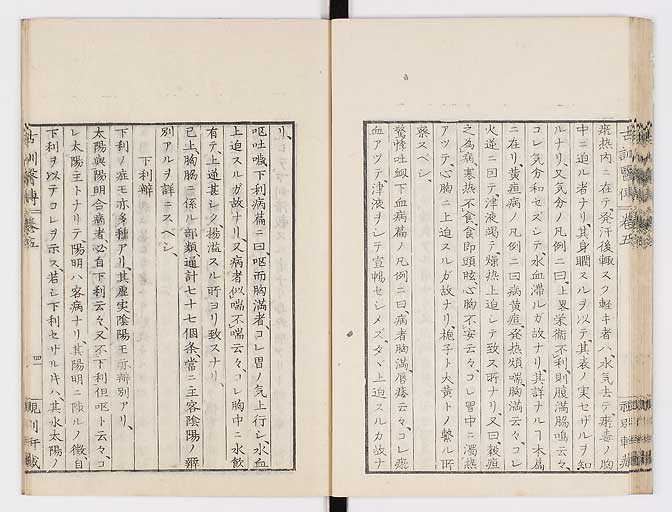 瘀熱内ニ在テ発汗後輙スク軽キ者ハ、水気去テ瘀毒ノ胸
中ニ迫ル者ナリ、其身瞤スルヲ以テ、其表ノ実セザルヲ知
ルナリ、又気分ノ凡例ニ曰、上畧栄衛不利、則腹満脇鳴云々、
コレ気分和セズシテ水血滞ルガ故ナリ、其詳ナルヿ本扁
ニ在リ、黄疸病ノ凡例ニ曰病黄疸、発熱煩喘、胸満云々、コレ
火逆ニ因テ、津液竭テ燥熱上迫シテ致ス所ナリ、又曰、穀疸
之為病、寒熱不食、食即頭眩、心胸不安云々、コレ胃中ニ濁熱
アツテ、心胸ニ上迫スルガ故ナリ、梔子ト大黄トノ繋ル所
察スベシ、
驚悸吐衂下血病篇ノ凡例ニ曰、病者胸満、唇痿云々、コレ瘀
血アツテ、津液ヲシテ宣暢セシメズ、タヾ上迫スルカ故ナ
古訓醫傳 卷五
リ、
嘔吐噦下利病萹ニ曰、嘔而胸満者、コレ胃ノ気上行シ、水血
上迫スルガ故ナリ、又病者似喘不喘云々、コレ胸中ニ水飲
有テ、上逆甚シク揚溢スル所ヨリ致スナリ、
已上、胸脇ニ係ル部類、通計七十七個条、當ニ主客陰陽ノ辨
別アルヲ詳ニスベシ、
下利辨
下利ノ症モ亦多種アリ、其虚実陰陽モ亦辨別アリ、
太陽與陽明合病者、必自下利云々、又不下利但嘔ト云々、コ
レ太陽主トナリテ陽明ハ客病ナリ、其陽明ニ陂ルノ徴、自
下利ヲ以テコレヲ示ス、若シ下利セザル片ハ、其水太陽ノ
古訓醫傳 卷五
四一